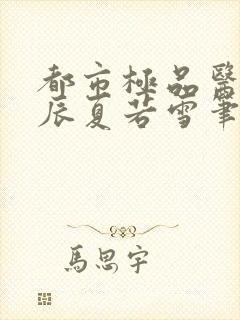 都市極品醫
辰夏若雪筆
馬思宇